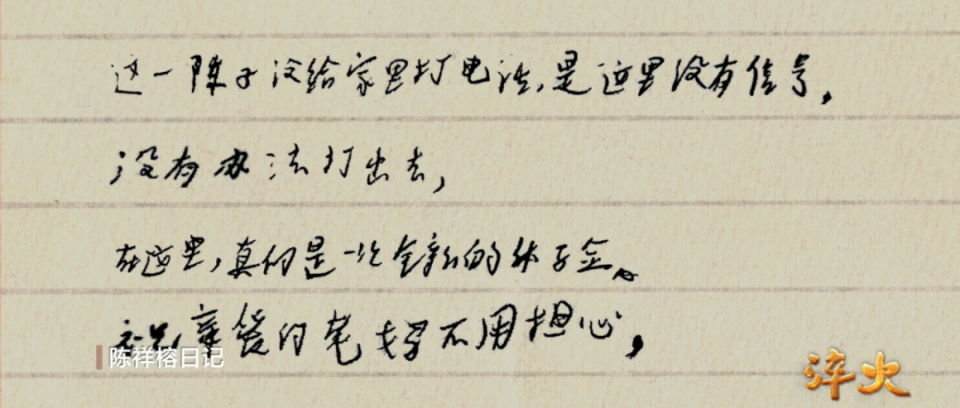 这一阵子没给家里打电话,是这里没有信号,
没有办法打出去,
在这里,真的是一次全新的体验。
亲爱的老妈不用担心,
陈祥榕日记
淬火